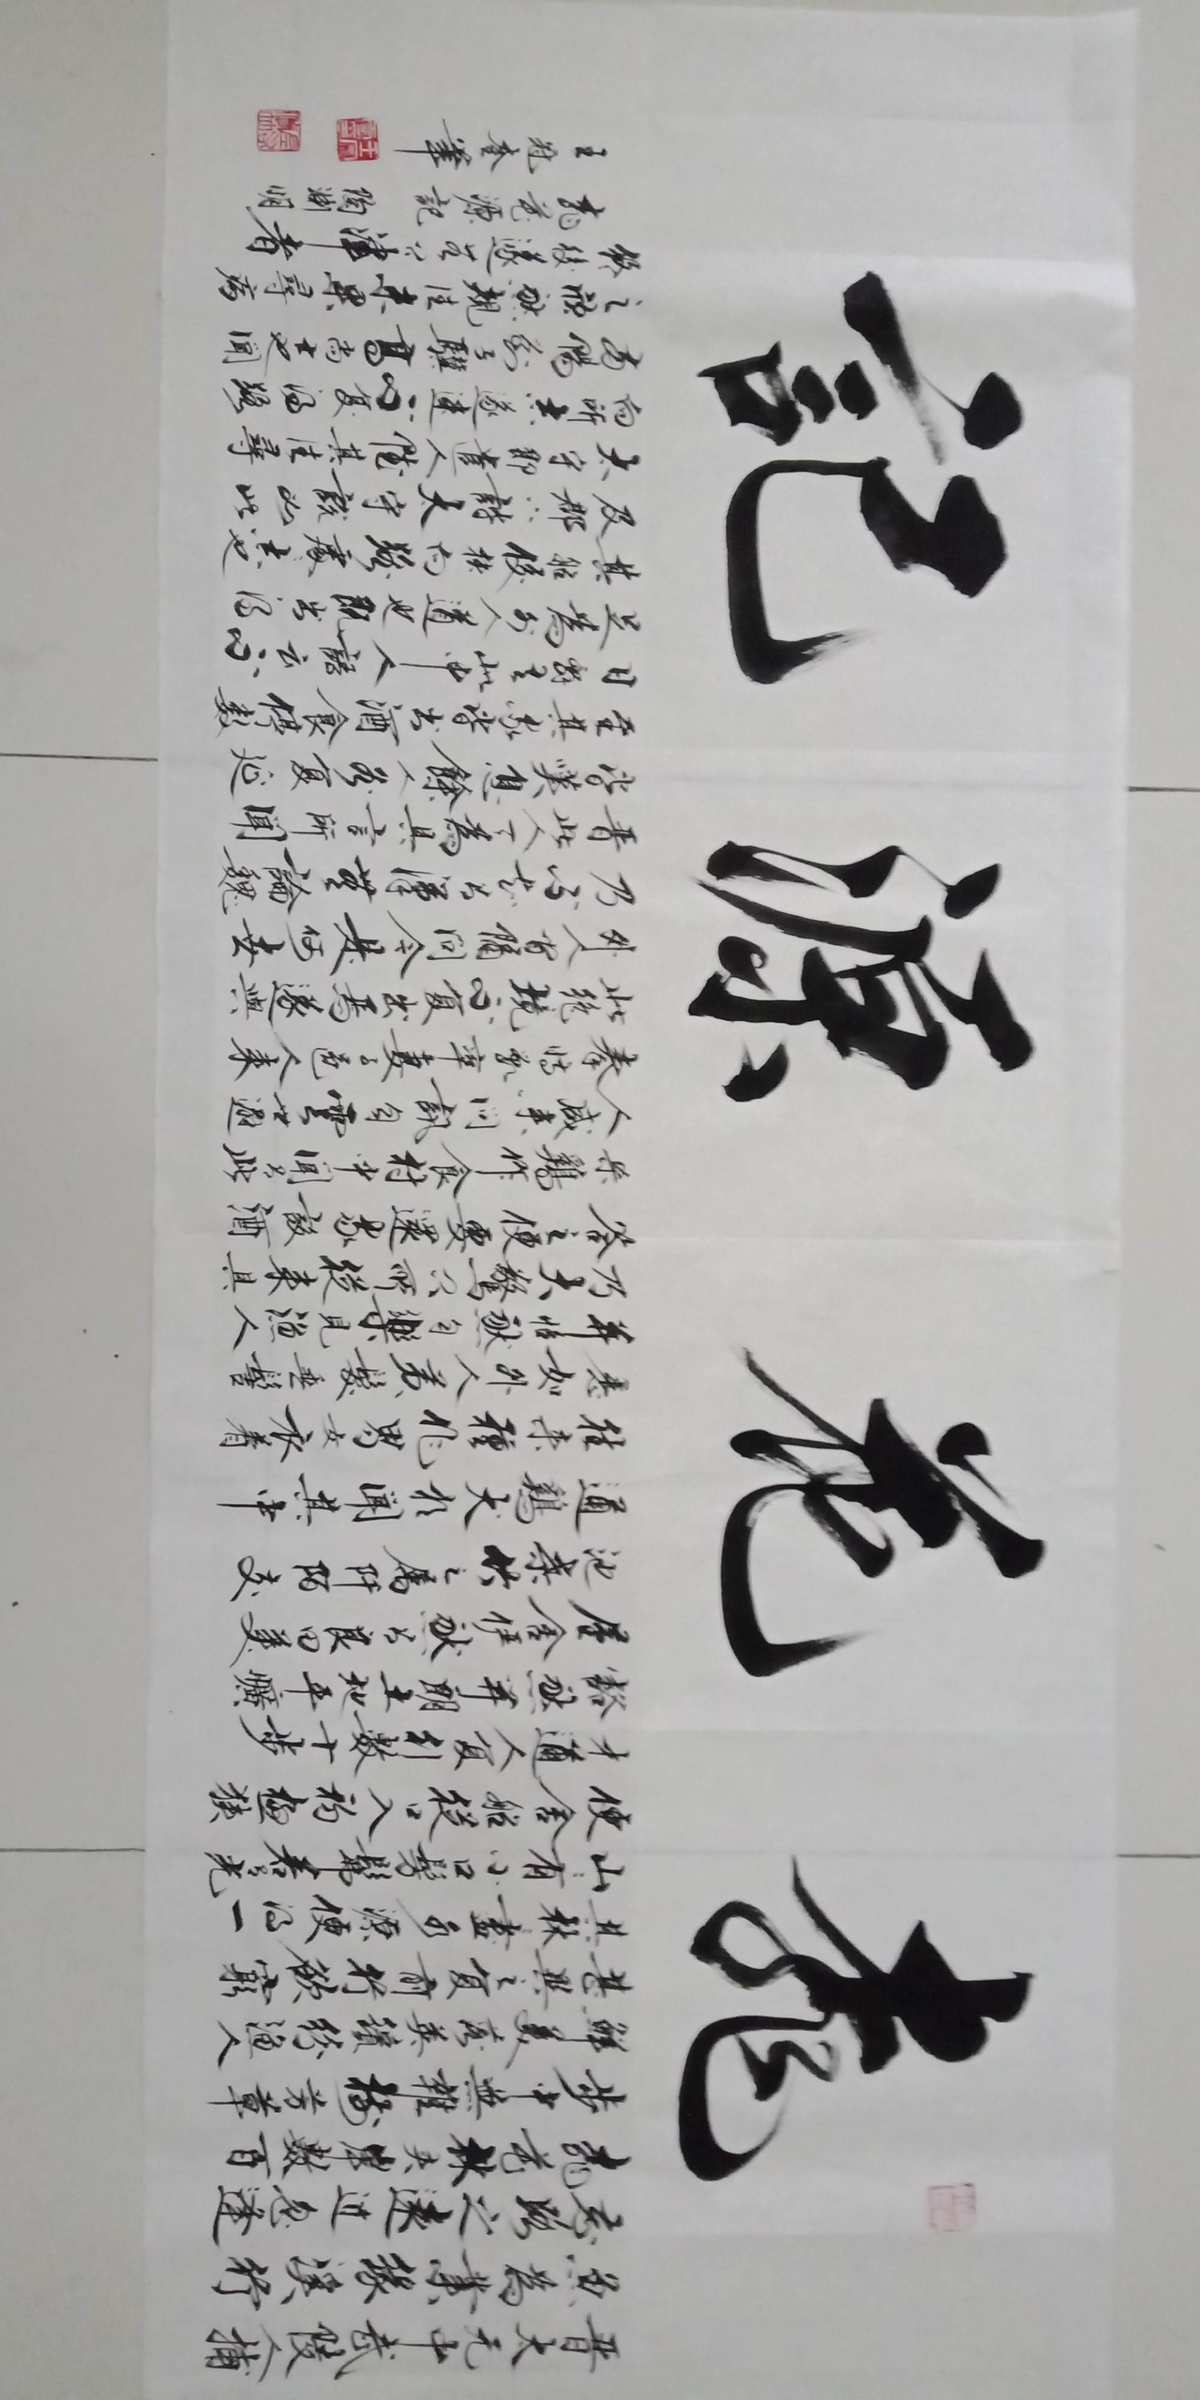 桃花源記
晉太元中武陵人捕
魚為業緣溪行
忘路之遠近忽逢
桃花林夾岸數百
步中無雜樹芳草
鮮美落英繽紛漁人
甚異之復前行欲窮
其林盡水源便得一
山有小口髣髴若有光
便舍船從口入初極狹
才通人復行數十步
豁然開朗土地平曠
屋舍儼然有良田美
池桑竹之屬阡陌交
通雞犬相聞其中
往來種作男女衣著
悉如外人黃髮垂髫
並怡然自樂見漁人
乃大驚問所從來具
答之便要還家設酒
殺雞作食村中聞有此
人咸来問訊自雲世避
秦時亂率妻子邑人來
此絕境不復出焉遂與
外人間隔問今是何世
乃不知有漢無論魏
晉此人一一為具言所聞
皆嘆惋餘人各復延
至其家皆出酒食停數
日辭去此中人語云不
足為外人道也既出得
其船便扶向路處志之
及郡下詣太守說如此
太守即遣人隨其往尋
向所志遂迷不復得路
南陽劉子驥高尚士也聞
之欣然規往未果尋病
終後遂無問津者
桃花源記 陶淵明
王 筆